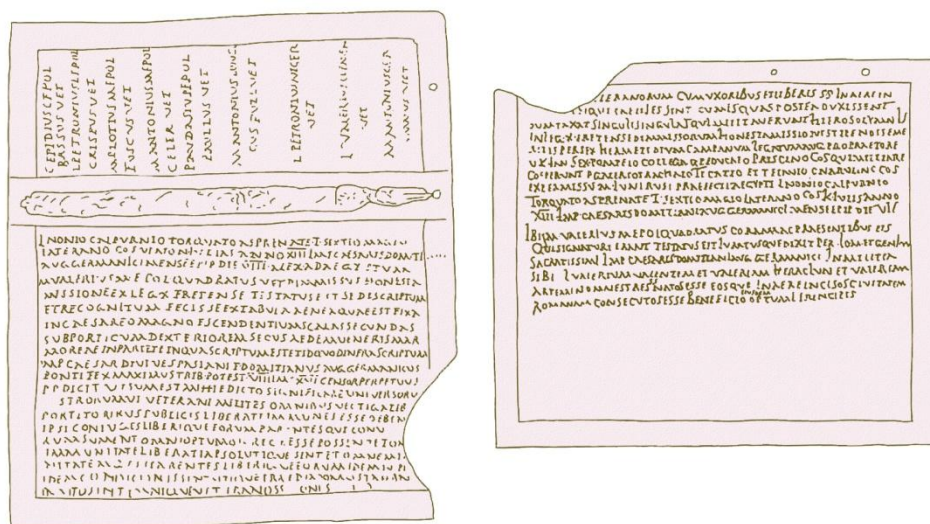 C EPIDIUS C F POL
BASSUS VET
L PETRONIUS L F POL
CRISPUS VET
M PLOTIUS M F POL
FUSCUS VET
M ANTONIUS M F POL
CELER VET
P AUDASIUS P F POL
PAULLUS VET
M ANTONIUS
VET
L PETRONIUS NIGER
VET
L VALERIUS CLEMENS
VET
M ANTONIUS GER
MANUS VET
L NONIO CALPURNIO TORQUATO ASPRENATE T SEXTIO MAGIO
LATERANO COS V ANNO XIII IMP CAESARIS DOMITI
AUG GERMANICI MENSE EPIP DIE VIII ALEXAD AEGYPTUM
M VALERIUS M F POL QUADRATUS VET DIMISSUS HONESTA
MISSIONE EX LEG X FRETENSE TESTATUS EST SE DESCRIPTUM
ET RECOGNITUM FECISSE EX TABULA AENEA QUAE EST FIXA
IN CAESAREO MAGNO ESCENDENTIUM SCALAS SECUNDAS
SUB PORTICUM DEXTERIOREM SECUS AEDEM VENERIS MAR
MOREAE IN PARIETE IN QUA SCRIPTUM EST ET ID QUOD INFRA SCRIPTUM
IMP CAESAR DIVI VESPASIANI F DOMITIANUS AUG GERMANICUS
PONTIFEX MAXIMUS TRIB POTEST VIII IMP XVI CENSOR PERPETUUS
P P DICIT VISUM EST MIHI EDICTO SIGNIFICARE UNIVERSORU
STRORUM VETERANI MILITES OMNIBUS VECTIGALIB
PORTITORIBUS PUBLICIS LIBERATI IMMUNES ESSE DEBEN
IPSI CONIUGES LIBERIQUE EORUM PARENTES QUI CONU
RUM SUMENT OMNI OPTUMO IURE C R ESSE POSSINT ET OM
IMMUNITATE LIBERATI APSOLUTIQUE SINT ET OMNEM I
PARENTES LIBERIQUE EORUM IDEM IU
IDEM CONDICIONIS SINT UTIQUE PRAEDIA DOMUS TABERN
INVITI SINT
VETERANORUM CUM UXORIBUS ET LIBERIS S S IN AERE IN
AUT SI QUI CAELIBES SINT CUM IS QUAS POSTEA DUXISSENT
DUMTAXAT SINGULI SINGULAS QUI MILITAVERUNT HIEROSOLYMNIS
IN LEG X FRETENSE DIMISSORUM HONESTA MISSIONE STIPENDIS EME
RITIS PER SEX HERMETIDIUM CAMPANUM LEGATUM AUG PRO PRAETORE
V K IAN SEX POMPEIO COLLEGA Q PEDUCAEO PRISCINO COS QUI MILITARE
COEPERUNT P GALERIO TRACHALO TI CATIO ET T FLAVIO CN ARULENO COS
EX PERMISSU M IUNI RUFI PRAEFECTI AEGYPTI L NONIO CALPURNIO
TORQUATO ASPRENATE T SEXTIO MAGIO LATERANO COS K IULIS ANNO
XIII IMP CAESARIS DOMITIANI AUG GERMANICI MENSE EPIP DIE VII
IBI M VALERIUS M F POL QUADRATUS CORAM AC PRAESENTIBUS EIS
QUI SIGNATURI ERANT TESTATUS EST IURATUSQUE DIXIT PER I O M ET GENIUM
SACRATISSIMI IMP CAESARIS DOMITIANI AUG GERMANICI IN MILITIA
SIBI L VALERIUM VALENTEM ET VALERIAM HERACLUN ET VALERIAM
ARTEMIN OMNES TRES S S NATOS ESSE EOSQUE IN AERE INCISOS CIVITATEM
ROMANAM CONSECUTOS ESSE BENEFICIO EIUSDEM OPTUMI PRINCIPIS